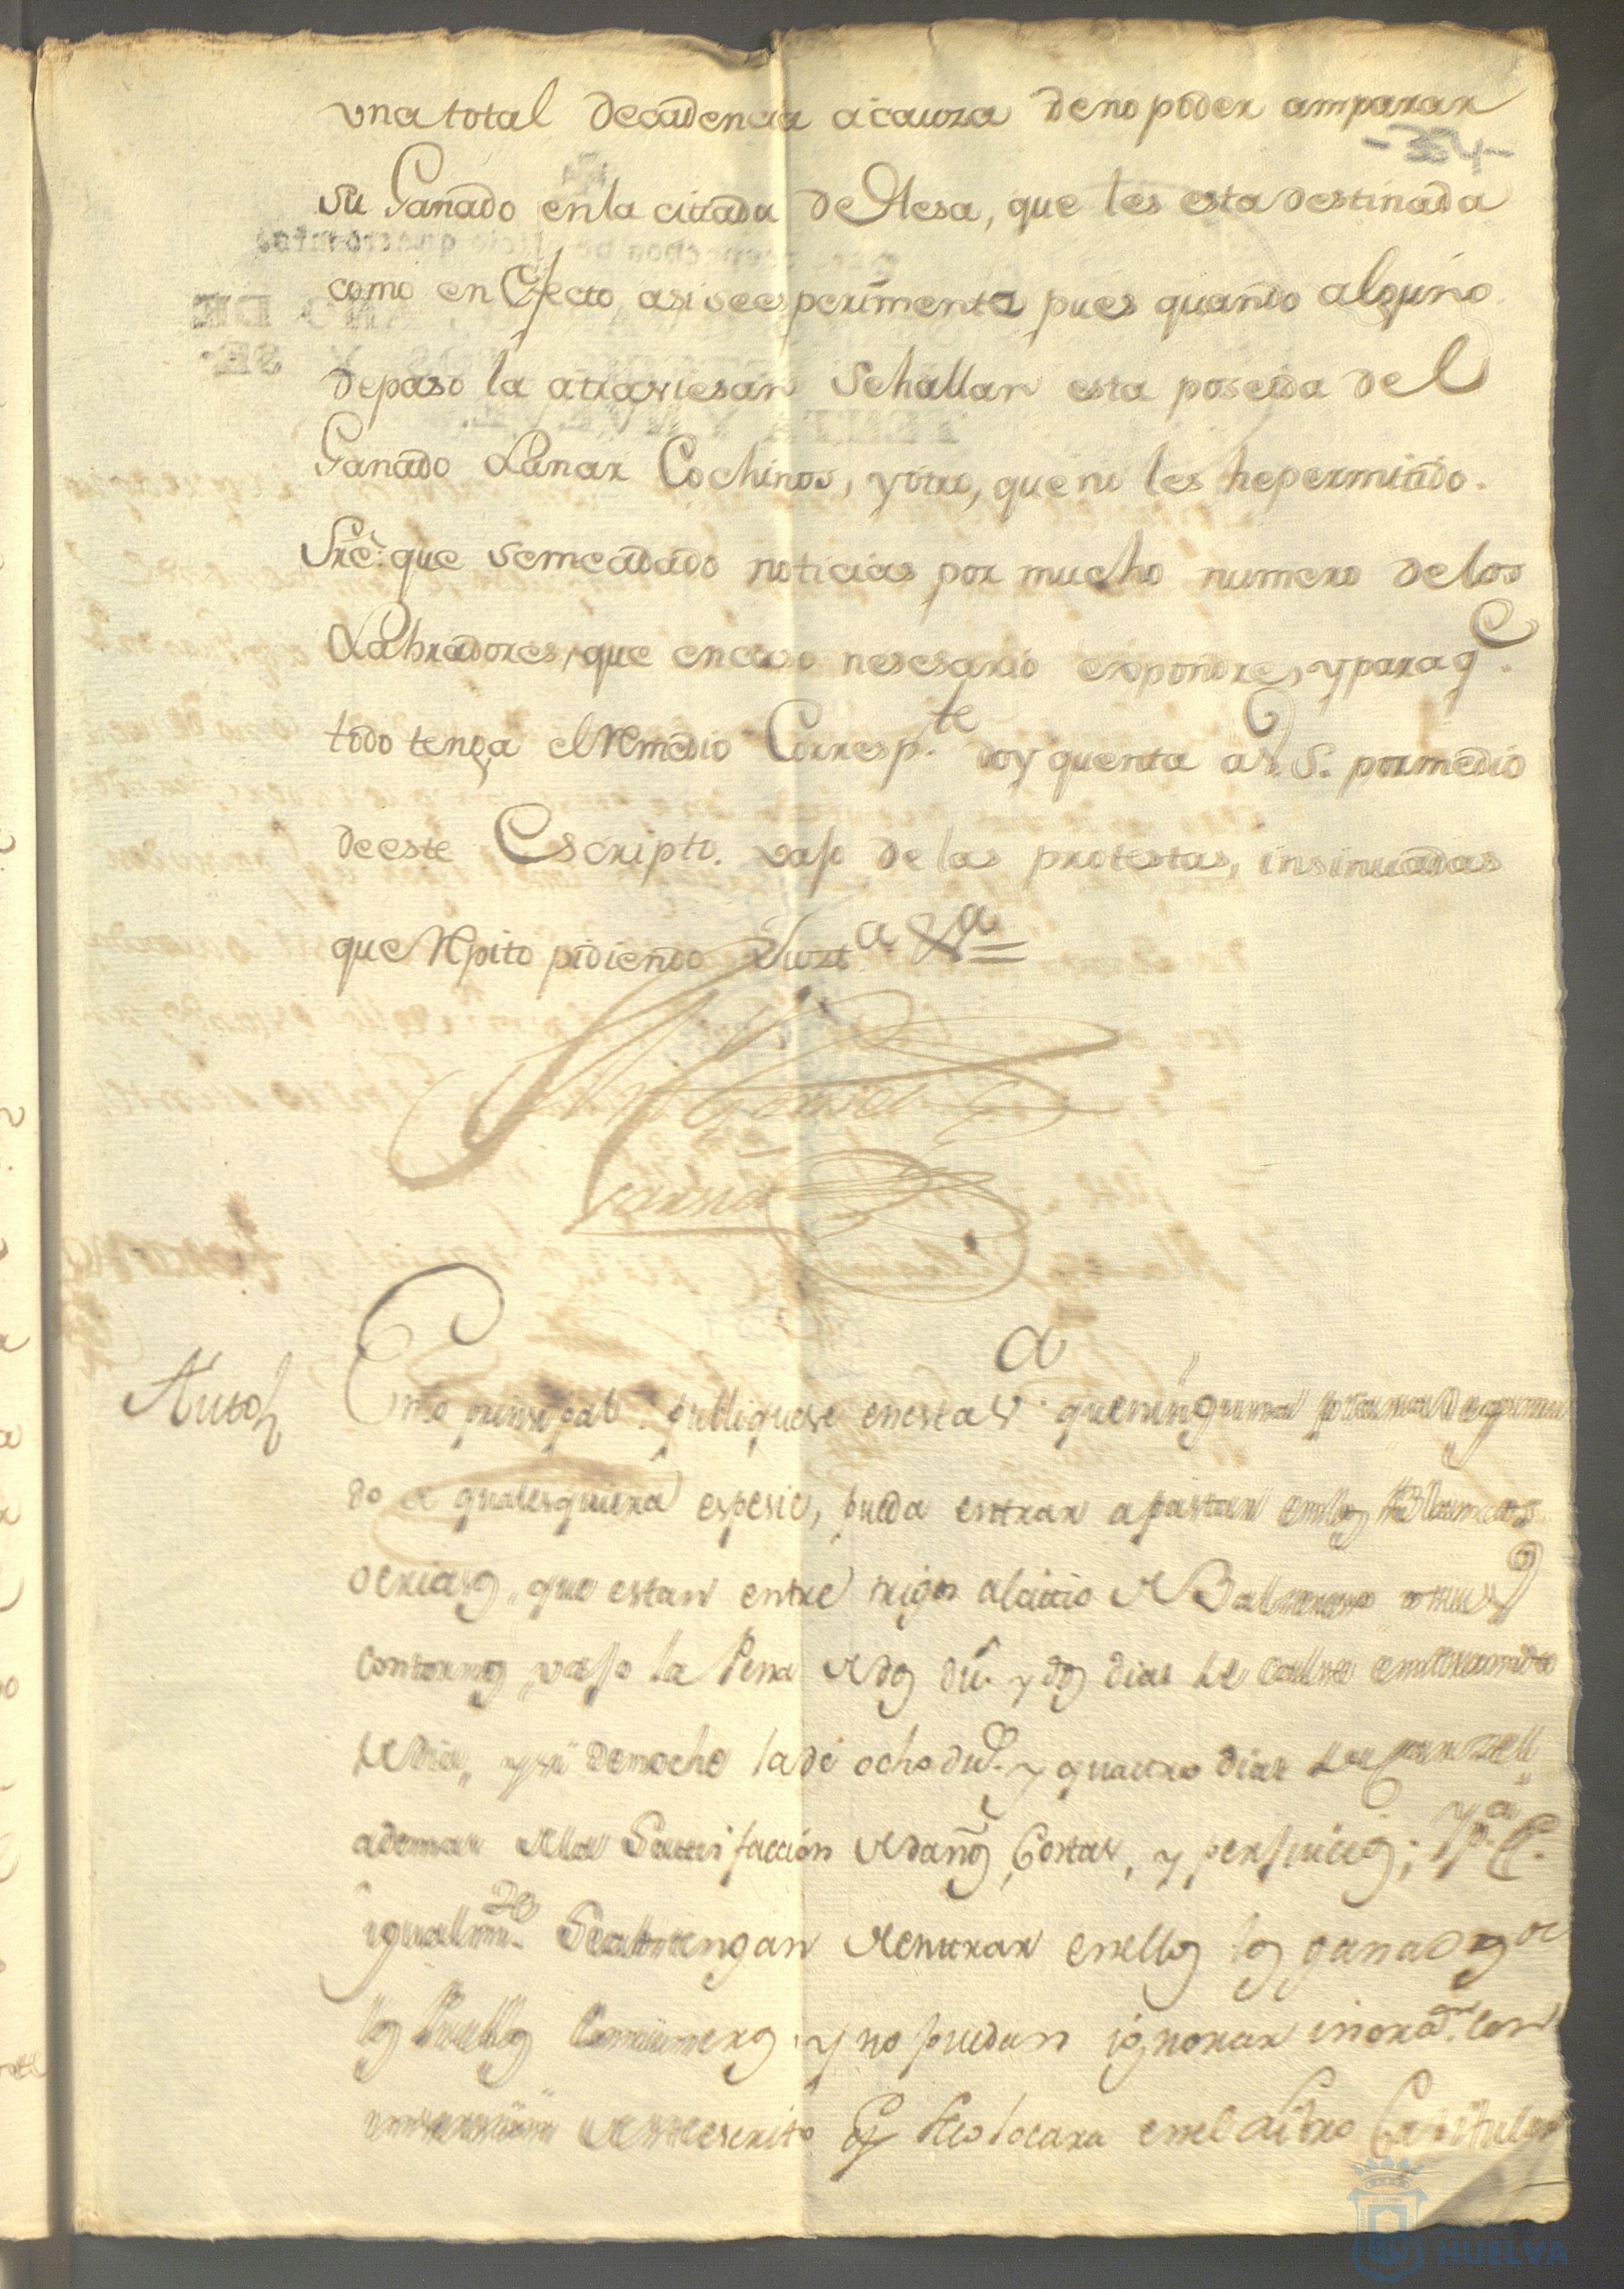 una total decadencia a cauza de no poder amparar
-354-
su Ganado en la citada deHesa, que les esta destinada
como en Efecto asi se esperimenta pues quando alguno
de paso la atraviesan se hallan esta poseida del
Ganado Lanar Cochinos, y otro, que ni les he permitido.
que se me a dado noticias por mucho numero de los
Labradores, que en caso nesesario expondre, y para q.e
todo tenga el Remedio Corresp.te doy quenta a V. S. por medio
de este Escripto. vajo de las protestas, insinuadas
que Repito pidiendo Juzt.a &a
Auto
En lo principal: publiquese en esta V.a que ninguna
de qualesquiera espesie, pueda entrar a pastar en los
que estan entre trigos al citio de
contornos, vajo la Pena de dos du.s y dos dias de
de dia, y si de noche la de ocho du.s y quatro dias de Carzel
ademas de la Satisfaccion de daños, Costas, y perjuicios; y p.a q.e
igualm.te Se abstengan de entrar en ellos los ganados de
los Pueblos Comuneros, y no puedan ignorar
de este escrito en el
HUELVA